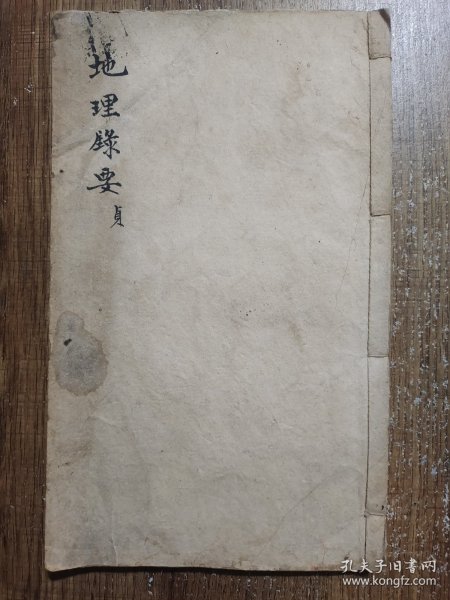 地理錄要
貞
孔夫子旧书网
www.kongfz.com